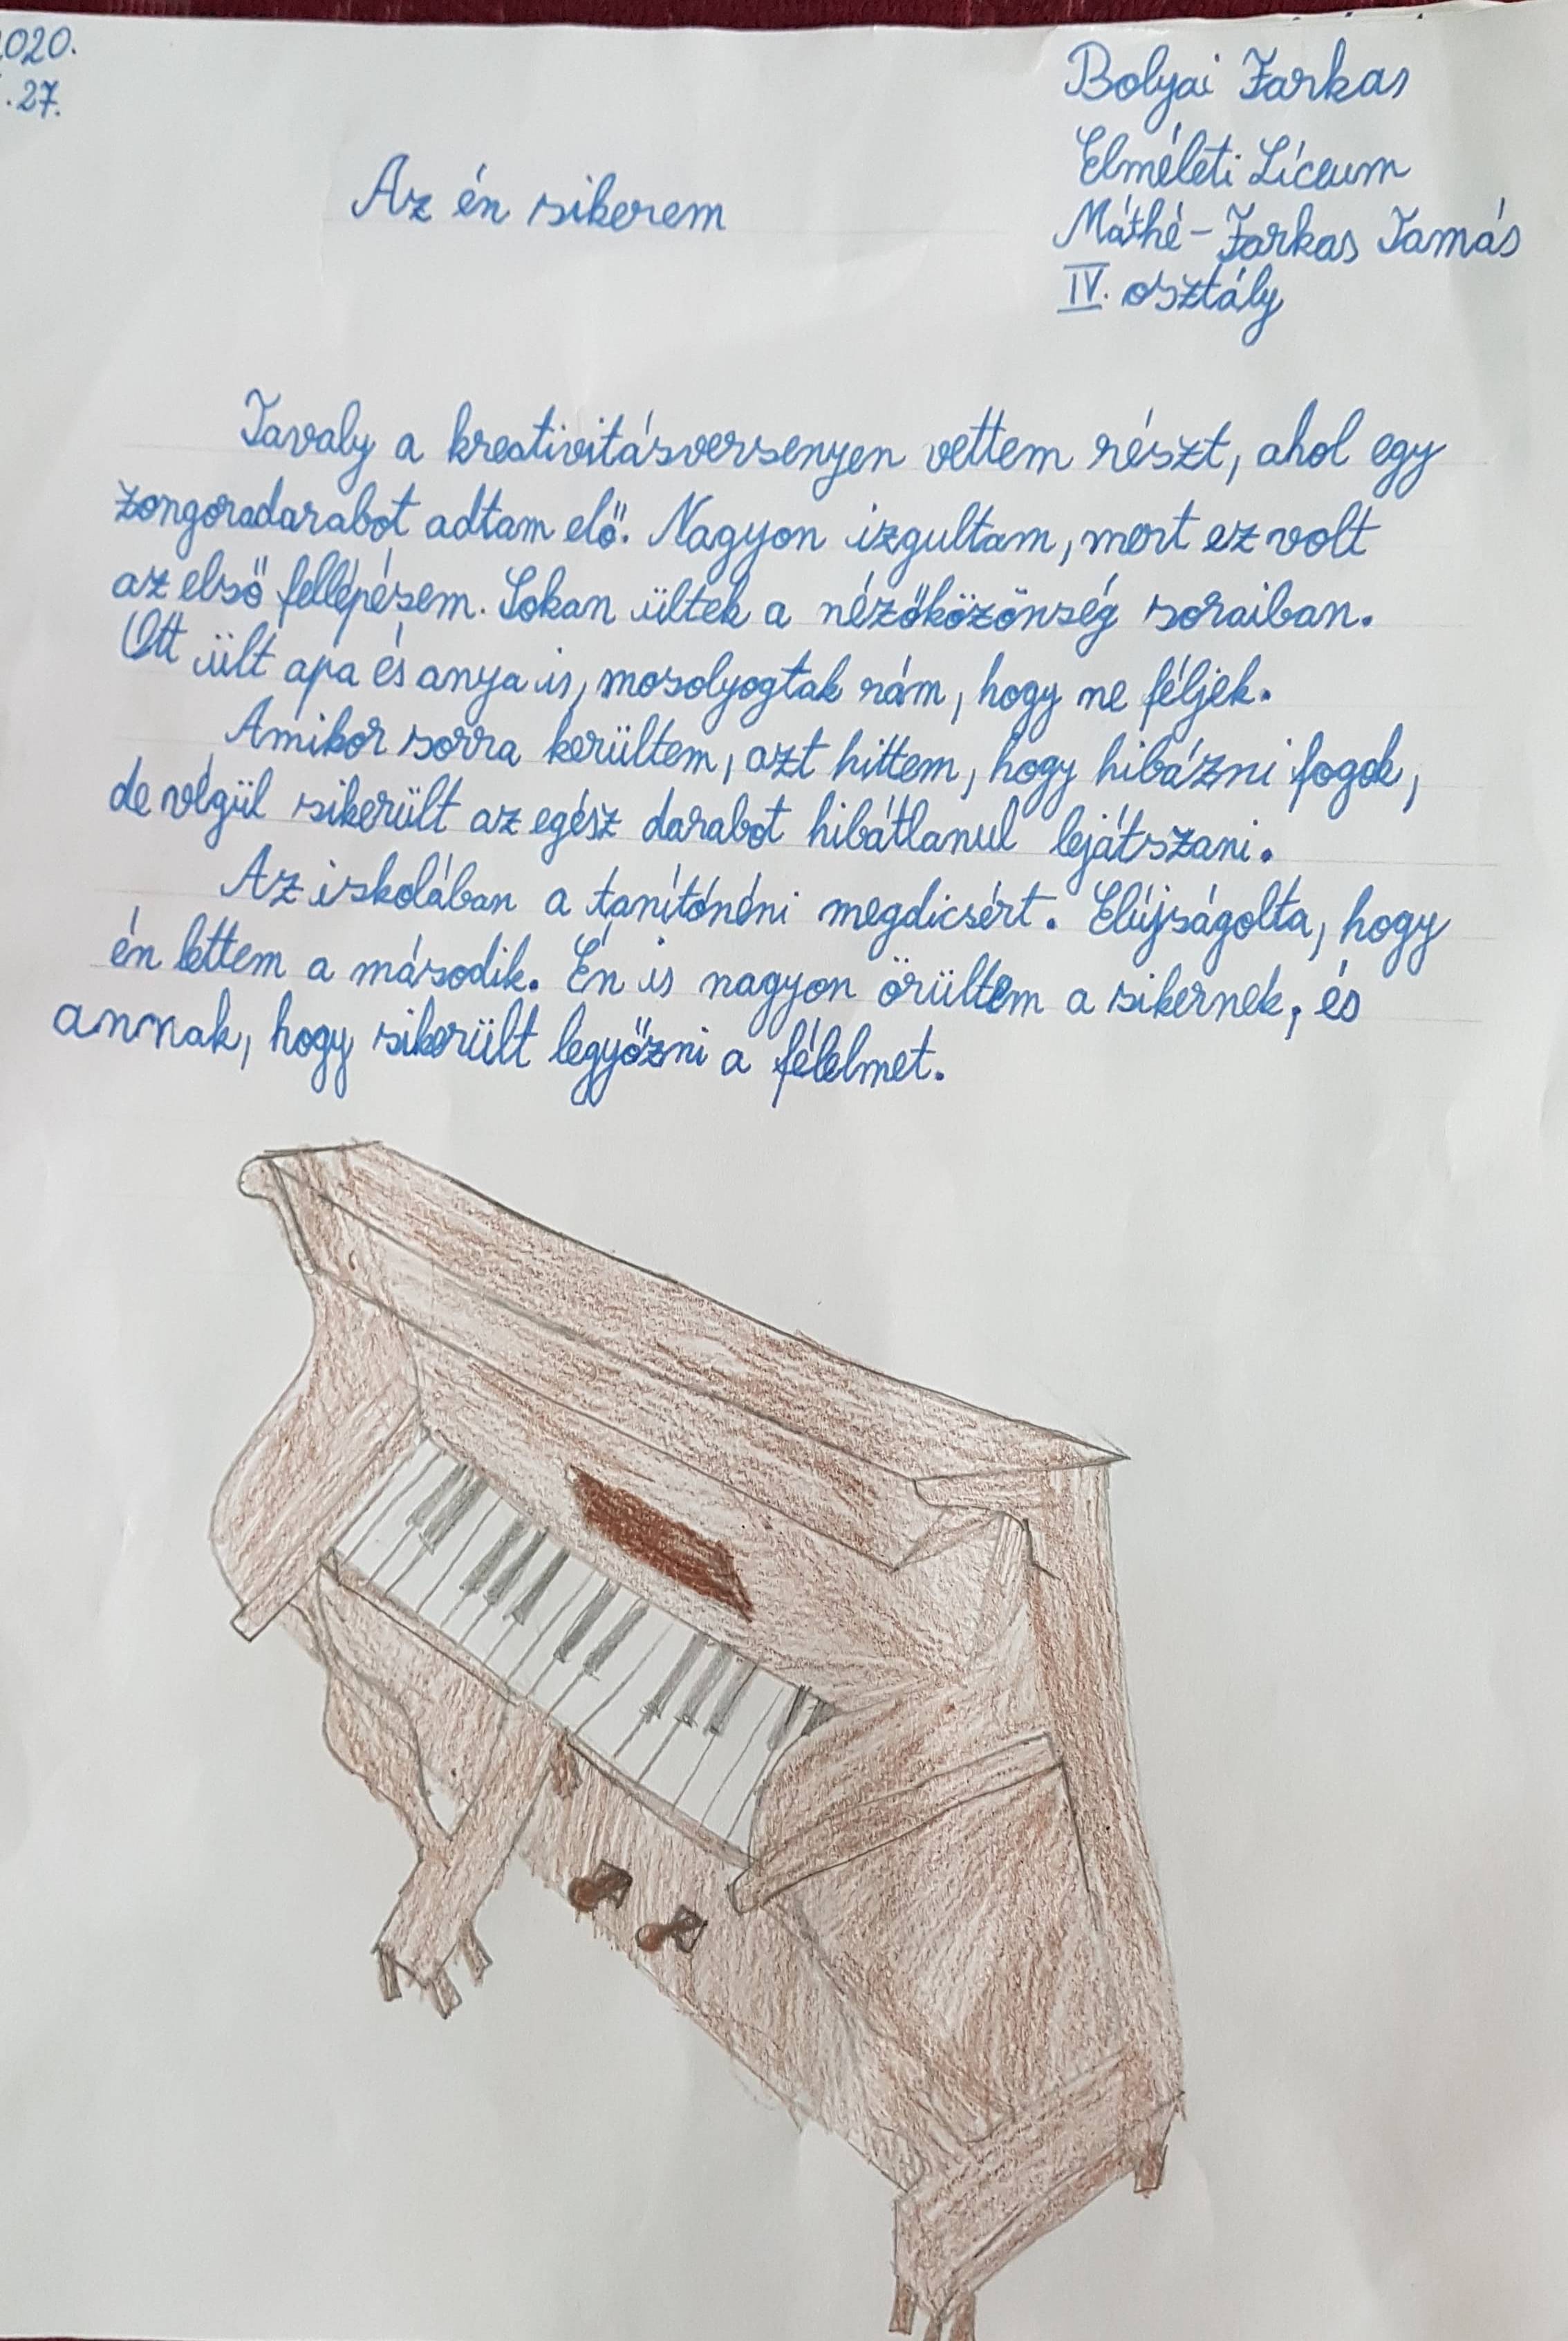 020.
. 27.
Bolyai Farkas
Elméleti Líceum
Máthé-Farkas Tamás
IV. osztály
Az én sikerem
Tavaly a kreativitásversenyen vettem részt, ahol egy
zongoradarabot adtam elő. Nagyon izgultam, mert ez volt
az első fellépésem. Sokan ültek a nézőközönség soraiban.
Ott ült apa és anya is, mosolyogtak rám, hogy ne féljek.
Amikor sorra kerültem, azt hittem, hogy hibázni fogok,
de végül sikerült az egész darabot hibátlanul lejátszani.
Az iskolában a tanítónéni megdicsért. Elújságolta, hogy
én lettem a második. Én is nagyon örültem a sikernek, és
annak, hogy sikerült legyőzni a félelmet.